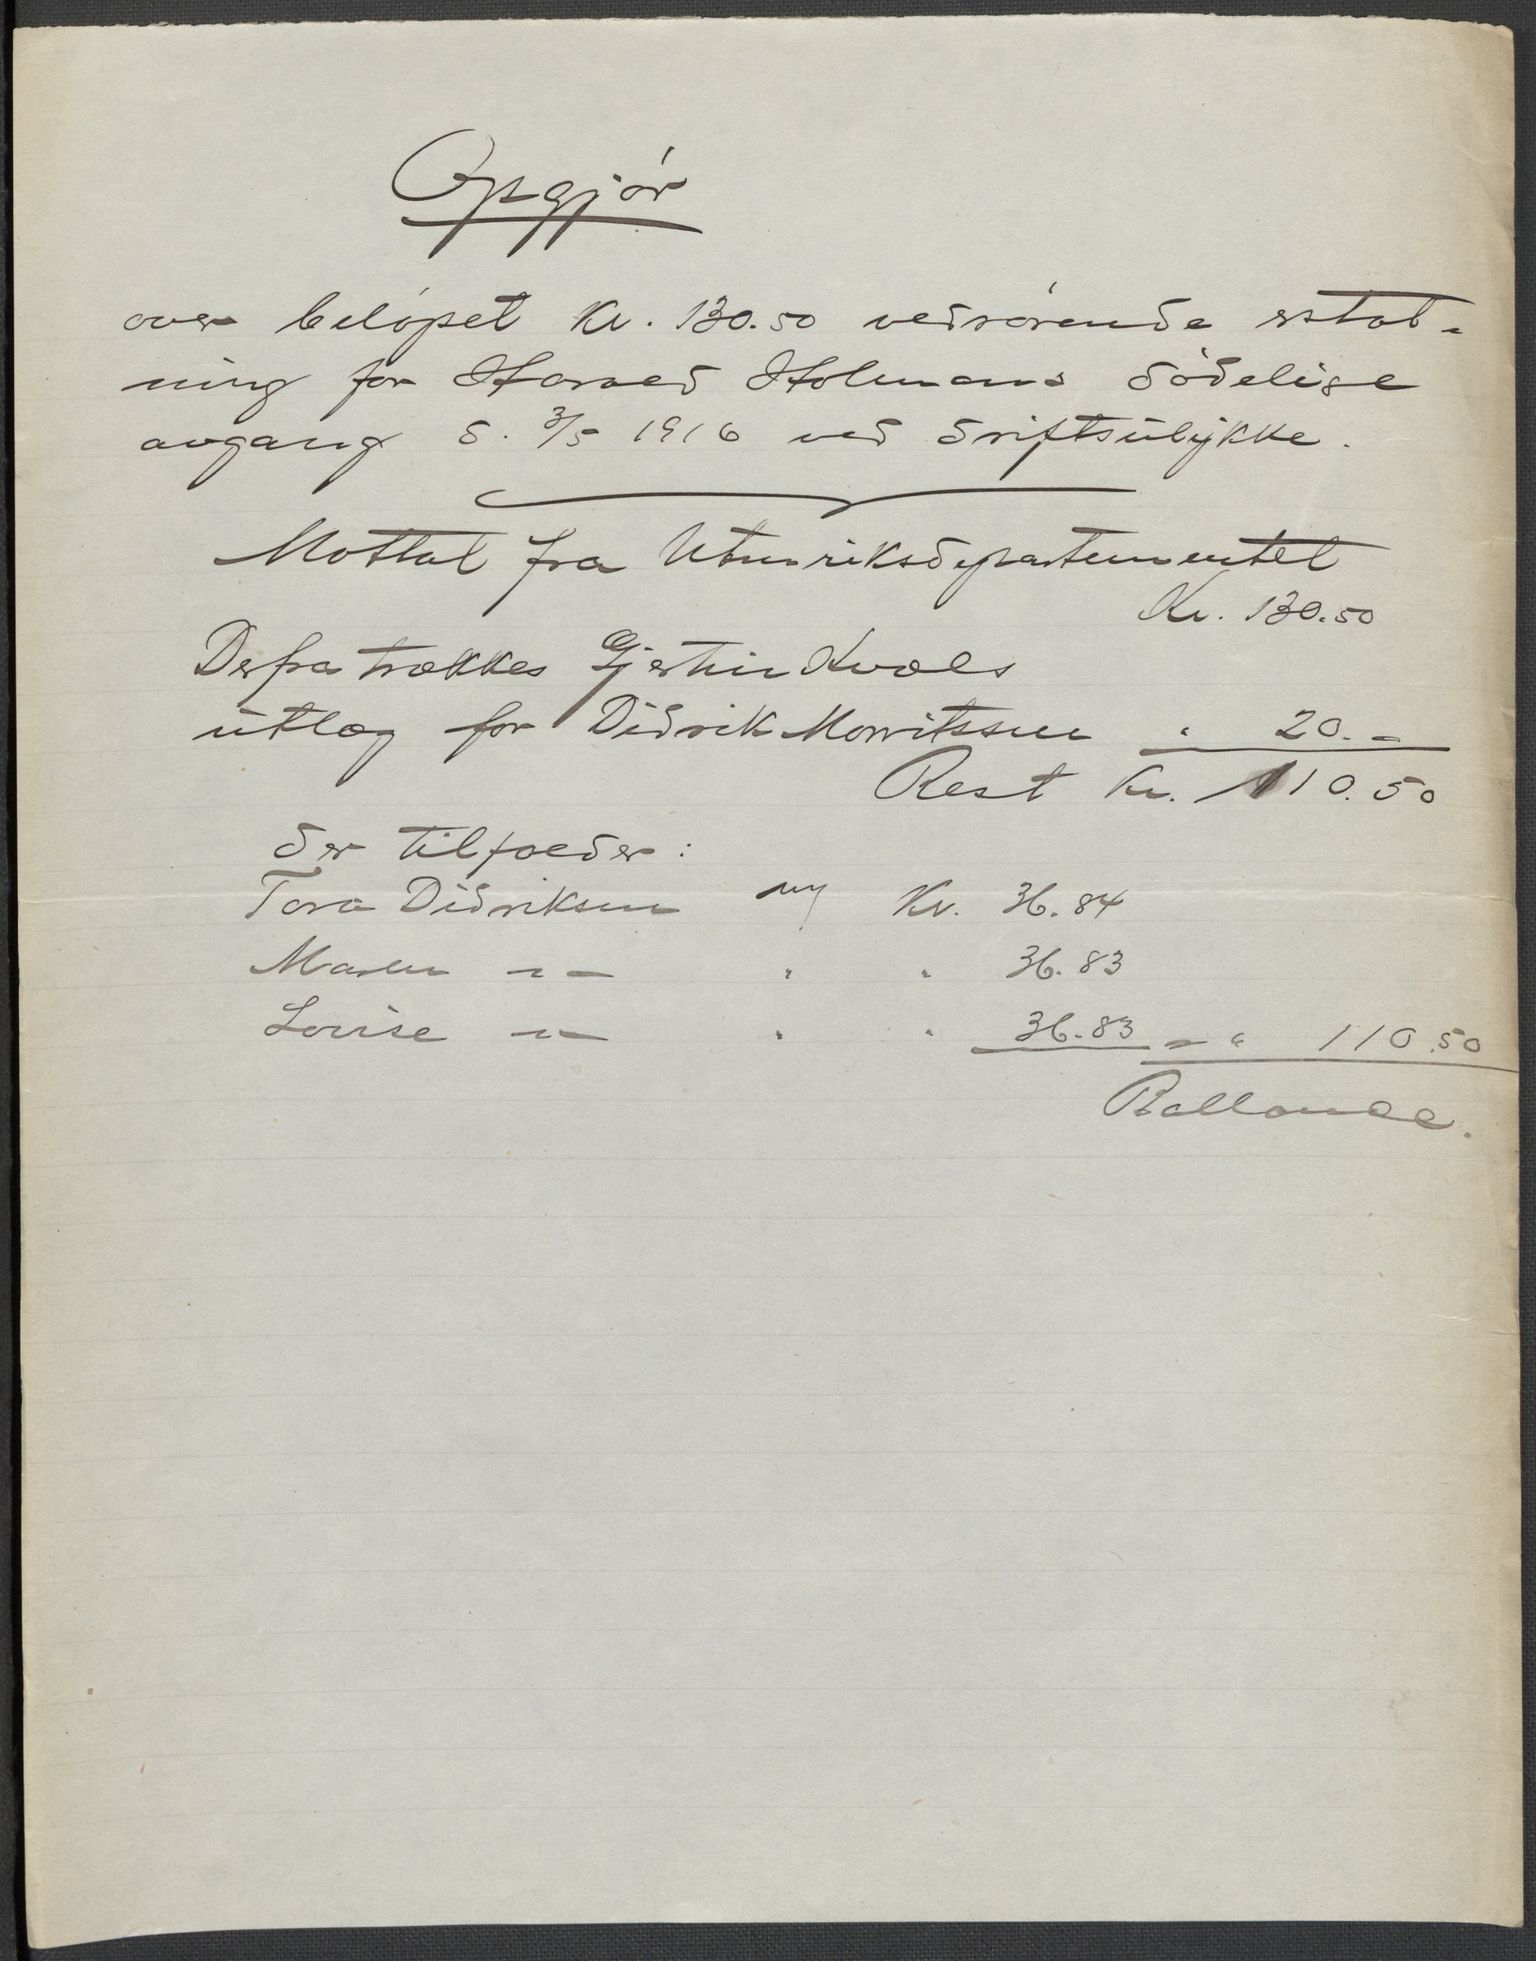 Opgjór
over belópet Kr. 130.50 vedrórende erstat-
ning for Harald Holmens dódelige
avgang d. 3/5 1916 ved driftsulykke.
Mottat fra Utenriksdepartementet
Kr. 130.50
Derfra trækkes Gjertine Kvals
utlæg for Didrik Morritssen " 20.-
Rest Kr. 110.50
der tilfalder:
Tora Didriksen Kr. 36.84
Maren -"- " " 36.83
Lovise -"- " " 36.83 - " 110.50
Ballance.